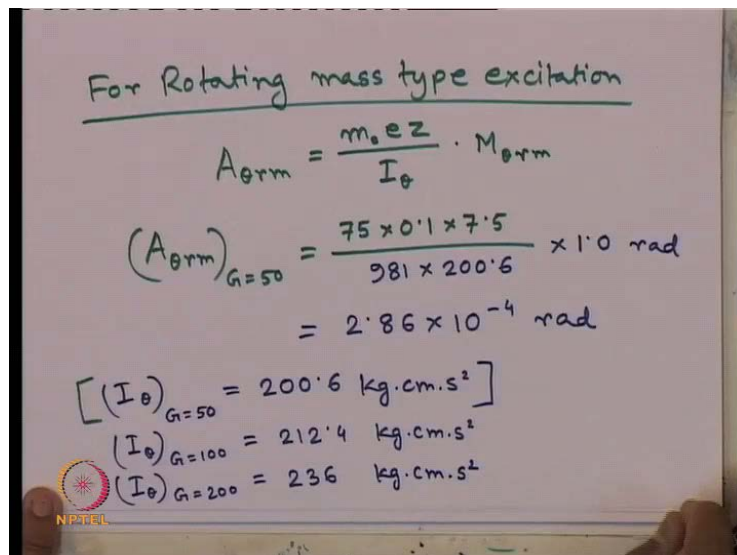 For Rotating mass type excitation
Aθrm = m₀ e z / Iθ · Mθrm
(Aθrm)G=50 = 75 × 0.1 × 7.5 / 981 × 200.6 × 1.0 rad
= 2.86 × 10⁻⁴ rad
[(Iθ)G=50 = 200.6 kg.cm.s²]
(Iθ)G=100 = 212.4 kg.cm.s²
(Iθ)G=200 = 236 kg.cm.s²
NPTEL